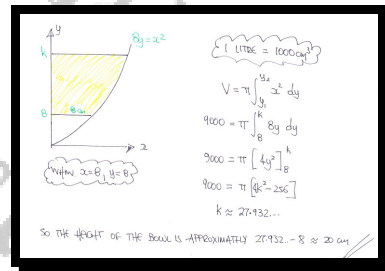 y
8y = x²
k
8
8cm
x
WHEN x=8, y=8
1 LITRE = 1000cm³
V = π ∫_{y₁}^{y₂} x² dy
9000 = π ∫_{8}^{k} 8y dy
9000 = π [4y²]_{8}^{k}
9000 = π [4k² - 256]
k ≈ 27.932...
SO THE HEIGHT OF THE BOWL IS APPROXIMATELY 27.932.. - 8 ≈ 20 cm